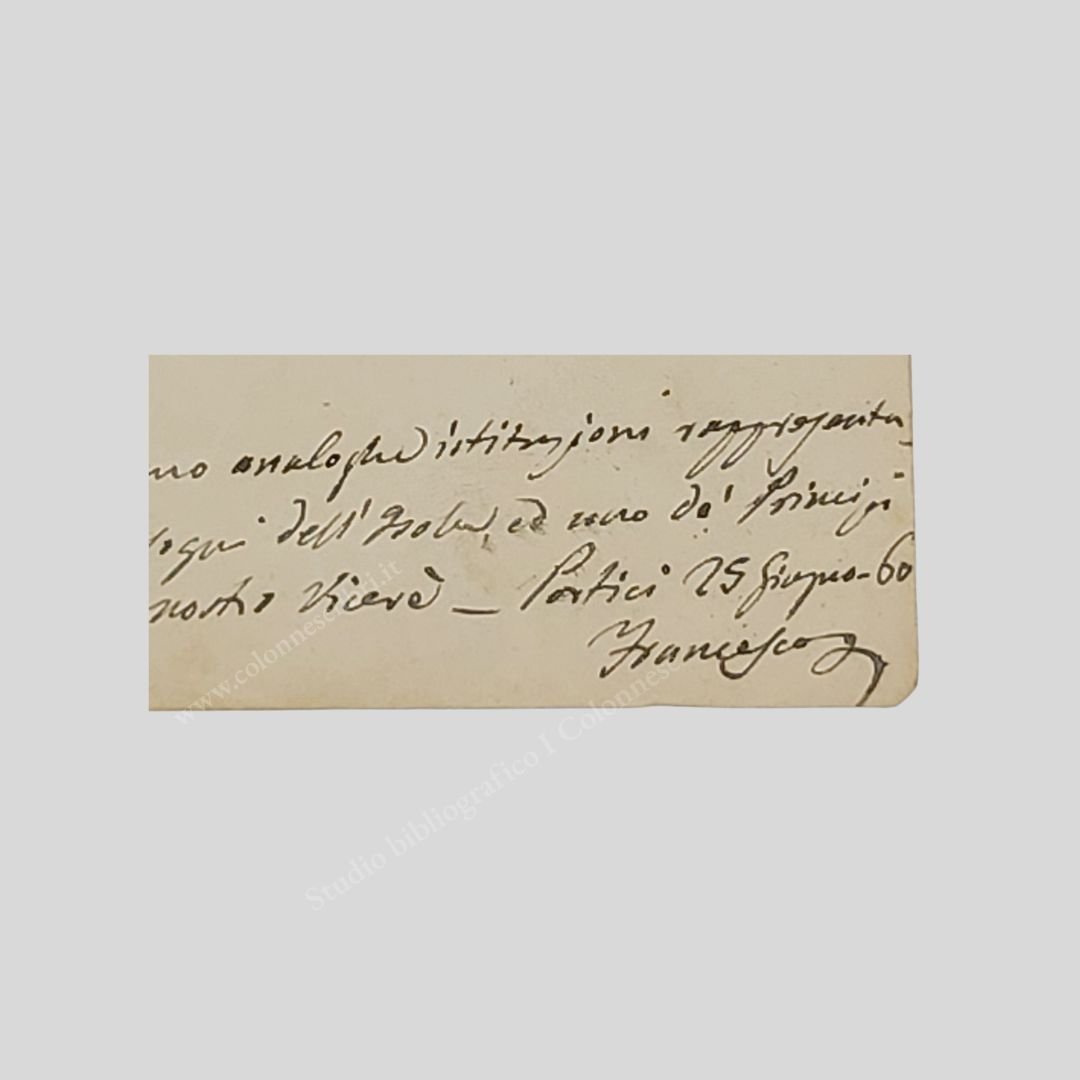 no analoghe istituzioni rappresenta-
sogni dell'Isola, ed uno da' Principi
nostro Vicerè — Portici 25 Giugno - 60
Francesco
www.colonnese.it
Studio bibliografico I Colonnese